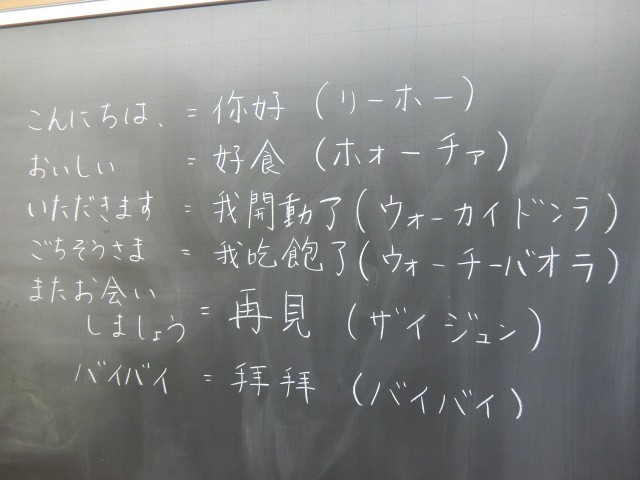 こんにちは、 = 你好 (リーホー)
おいしい = 好食 (ホォーチァ)
いただきます = 我開動了 (ウォーカイドンラ)
ごちそうさま = 我吃飽了 (ウォーチーバオラ)
またお会い
しましょう = 再見 (ザイジュン)
バイバイ = 拜拜 (バイバイ)